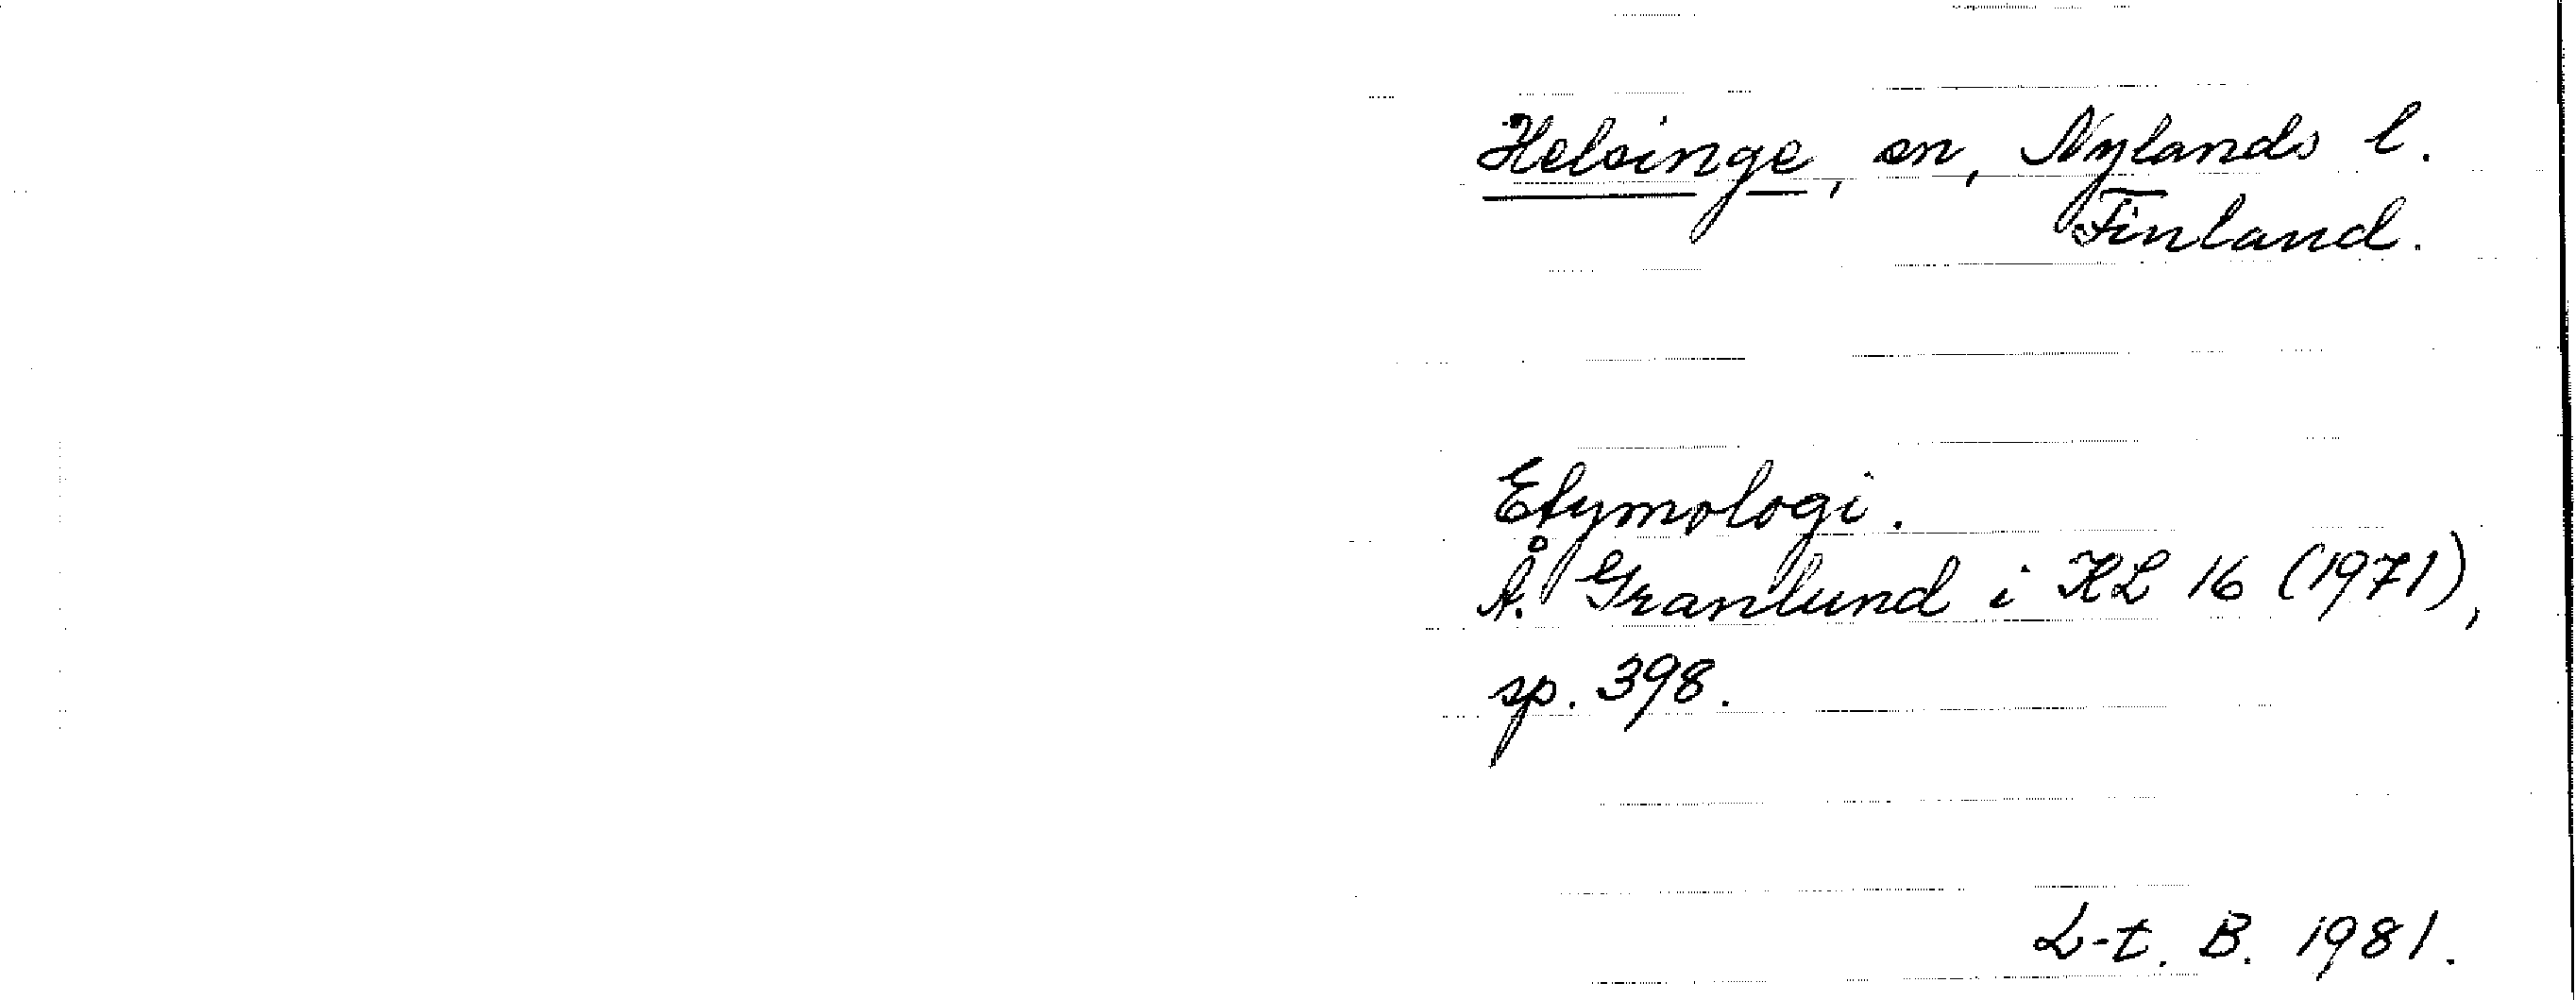 Helsinge, sn, Nylands l.
Finland.
Etymologi.
Å. Granlund i KL 16 (1971),
sp. 398.
L-t. B. 1981.